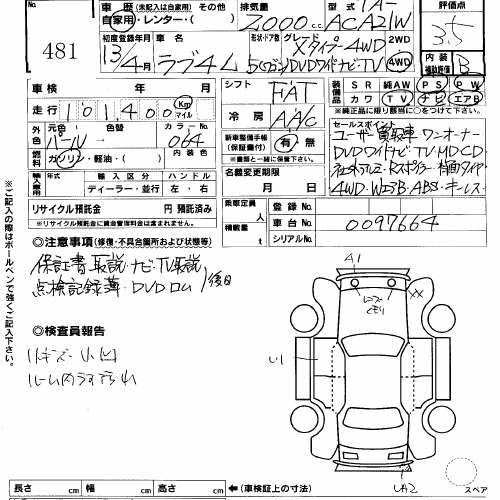 481
車歴 (未記入は自家用) その他
自家用・レンター・( )
排気量 2000 c.c.
型式 TA-
ACA21W
評価点
3.5
初度登録年月 13/4月
車名 ラブ4 L
形状・ドア数 グレード Xタイプ 4WD
5(ワゴン)DVDワイドナビTV
2WD
4WD
内装
補助評価 B
車検 年 月
走行 101,400 Km マイル
シフト FAT
冷房 AAC
装備品 SR 純AW PS PW
カワ TV ナビ エアB
※純正品に限り○をつけて下さい。
外色 元色・ 色替
パール
カラーNo. 064
内装色
燃料 ガソリン・軽油・( )
新車整備手帳
(保証書付) 有・無
※書類と一緒に保管して下さい。
セールスポイント
ユーザー買取車・ワンオーナー
DVDワイドナビ・TV・MD・CD
社外アルミ・Rスポイラー・背面タイヤ
4WD・WエアB・ABS・キーレス
輸入車用 年式 輸入区分 ハンドル
ディーラー・並行 左・右
名義変更期限
月 日
リサイクル預託金 円 預託済み
※リサイクル預託金に資金管理料金は含まれません。
乗車定員 人
積載量 t
登録No.
車台No. 0097664
シリアルNo.
◎注意事項 (修復・不具合箇所および状態等)
保証書・取説・ナビ・TV取説
点検記録簿・DVDロム 後日
◎検査員報告
小キズ・小凹
ルーム内
A1
XX
U1
UA2
スペア
長さ cm 幅 cm 高さ cm ←(車検証上の寸法)
※ご記入の際はボールペンで強くご記入下さい。